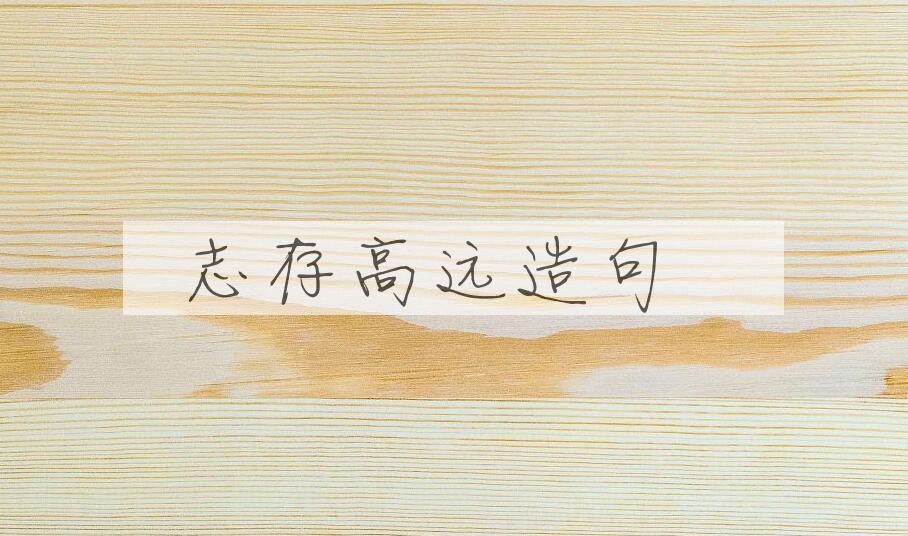 志存高远造句